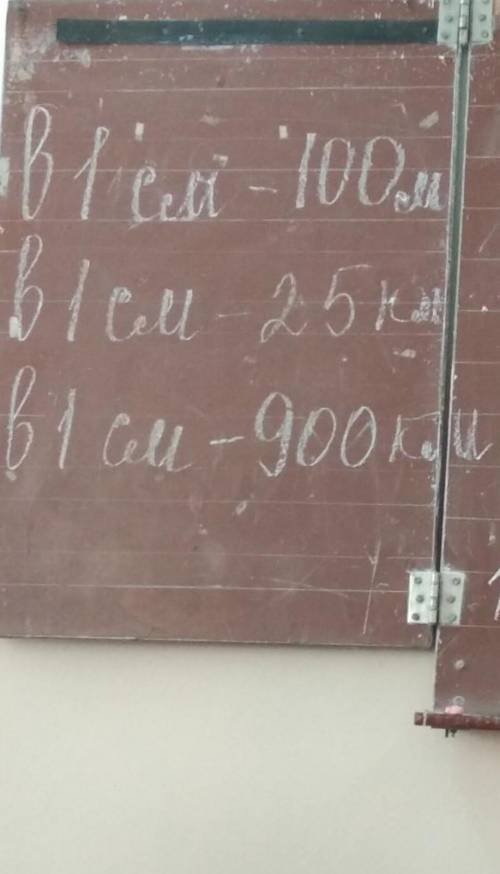 в 1 см - 100 м
в 1 см - 25 км
в 1 см - 900 км